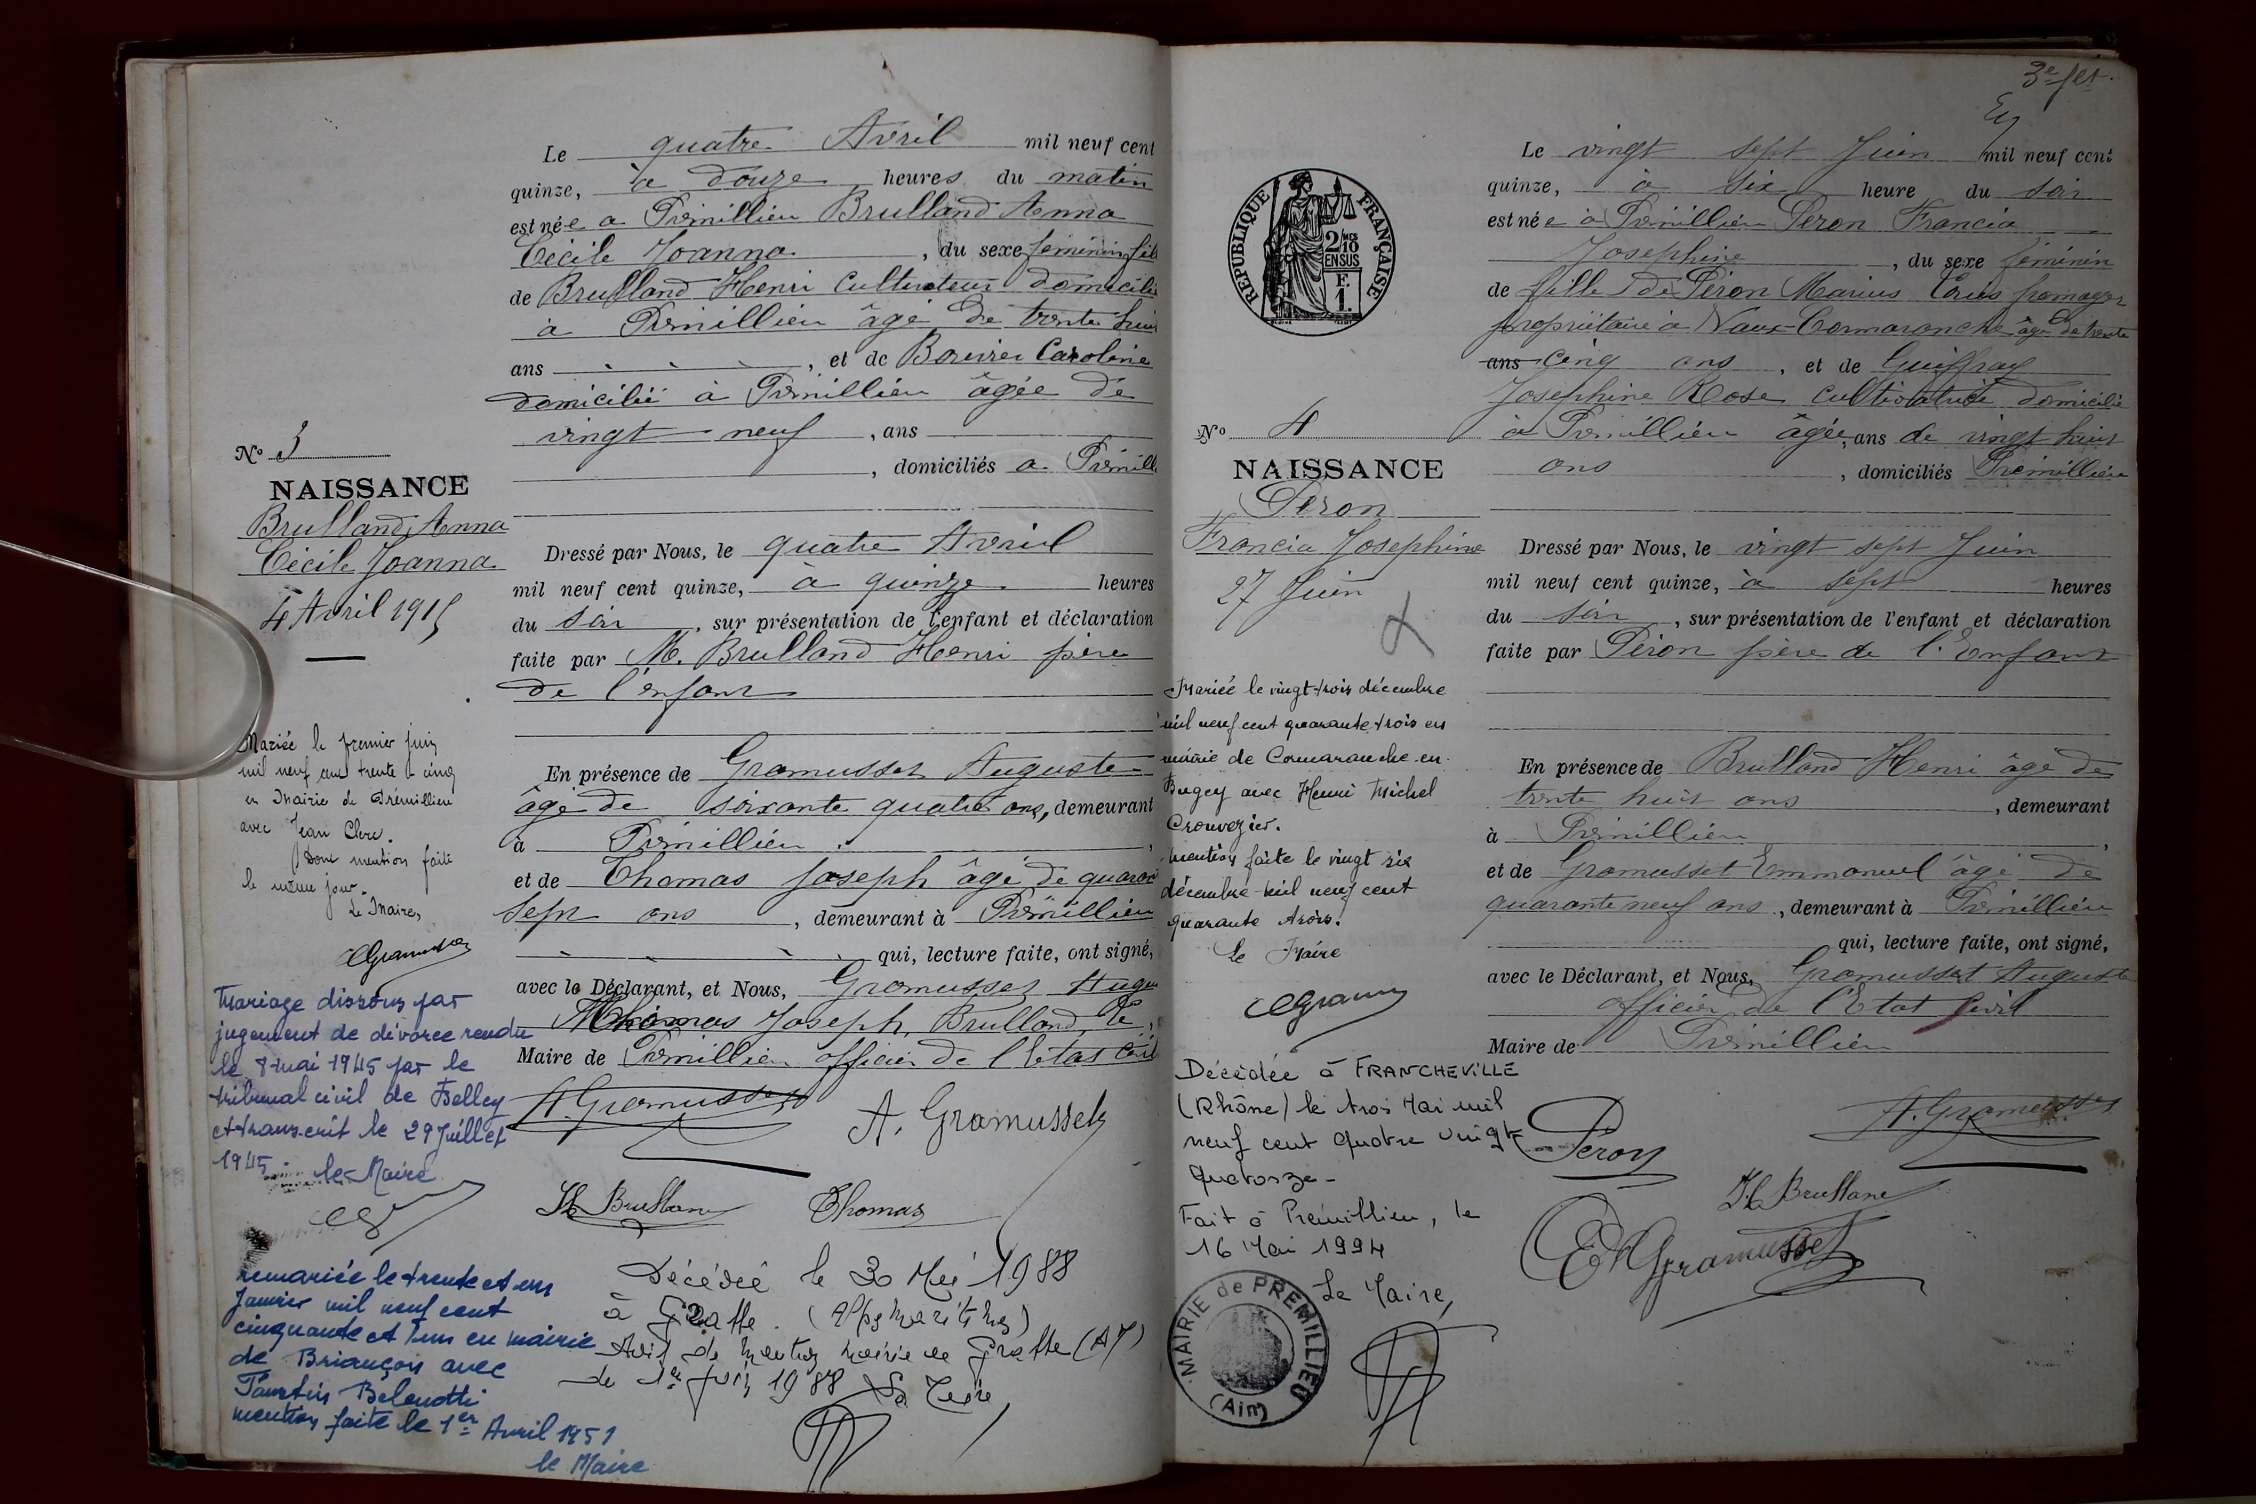 Le quatre Avril mil neuf cent
quinze, à douze heures du matin
est née a Prémillieu Brulland Anna
Cécile Joanna, du sexe féminin fille
de Brulland Henri Cultivateur domicilié
à Prémillieu âgé de trente huit
ans, et de Bouvier Caroline
domicilié à Prémillieu âgée de
vingt neuf, ans
, domiciliés a Prémill
N° 3
NAISSANCE
Brulland Anna
Cécile Joanna
4 Avril 1915
Dressé par Nous, le quatre Avril
mil neuf cent quinze, à quinze heures
du soir, sur présentation de l'enfant et déclaration
faite par M. Brulland Henri père
de l'enfant
En présence de Gramusset Auguste
âgé de soixante quatre ans, demeurant
à Prémillieu
et de Thomas Joseph âgé de quaran
sept ans, demeurant à Prémillieu
qui, lecture faite, ont signé,
avec le Déclarant, et Nous, Gramusset Augu
Thomas Joseph, Brulland, le
Maire de Prémillieu officier de l'état civil
A. Gramusset
A. Gramusset
H Brulland
Thomas
Mariée le premier juin
mil neuf cent trente cinq
en Mairie de Prémillieu
avec Jean Clerc.
Dont mention faite
le même jour.
Le Maire,
CGramusset
Mariage dissous par
jugement de divorce rendu
le 8 mai 1945 par le
tribunal civil de Belley
et transcrit le 29 Juillet
1945
le Maire
remariée le trente et un
Janvier mil neuf cent
cinquante et un en mairie
de Briançon avec
Faustin Belenotti
mention faite le 1er Avril 1951
le Maire
Décédée le 30 Mai 1988
à Grasse (Alpes Maritimes)
Avis de mention mairie de Grasse (AM)
du 1er Juin 1988 Le Maire
3e fet.
Le vingt sept Juin mil neuf cent
quinze, à six heure du soir
est née à Prémillieu Peron Francia
Josephine, du sexe féminin
de fille de Péron Marius fromager
propriétaire à Vaux-Cormaranche âgé de trente
ans cinq ans, et de Guiffray
Josephine Rose cultivatrice domicilié
à Prémillieu âgée, ans de vingt huit
ans, domiciliés Prémillieu
REPUBLIQUE FRANÇAISE
2/10 MES
EN SUS
F.
1.
N° 4
NAISSANCE
Peron
Francia Josephine
27 Juin
Dressé par Nous, le vingt sept Juin
mil neuf cent quinze, à sept heures
du soir, sur présentation de l'enfant et déclaration
faite par Péron père de l'Enfant
En présence de Brulland Henri âgé de
trente huit ans, demeurant
à Prémillieu
et de Gramusset Emmanuel âgé de
quarante neuf ans, demeurant à Prémillieu
qui, lecture faite, ont signé,
avec le Déclarant, et Nous, Gramusset Auguste
officier de l'Etat Civil
Maire de Prémillieu
Péron
A. Gramusset
H. Brulland
E Gramusset
Mariée le vingt trois décembre
mil neuf cent quarante trois en
mairie de Cormaranche-en-
Bugey avec Henri Michel
Crouvezier.
Mention faite le vingt six
décembre mil neuf cent
quarante trois.
Le Maire
CGramu
Décédée à FRANCHEVILLE
(Rhône) le trois Mai mil
neuf cent quatre vingt
quatorze-
Fait à Prémillieu, le
16 Mai 1994
Le Maire,
MAIRIE de PREMILLIEU
(Ain)